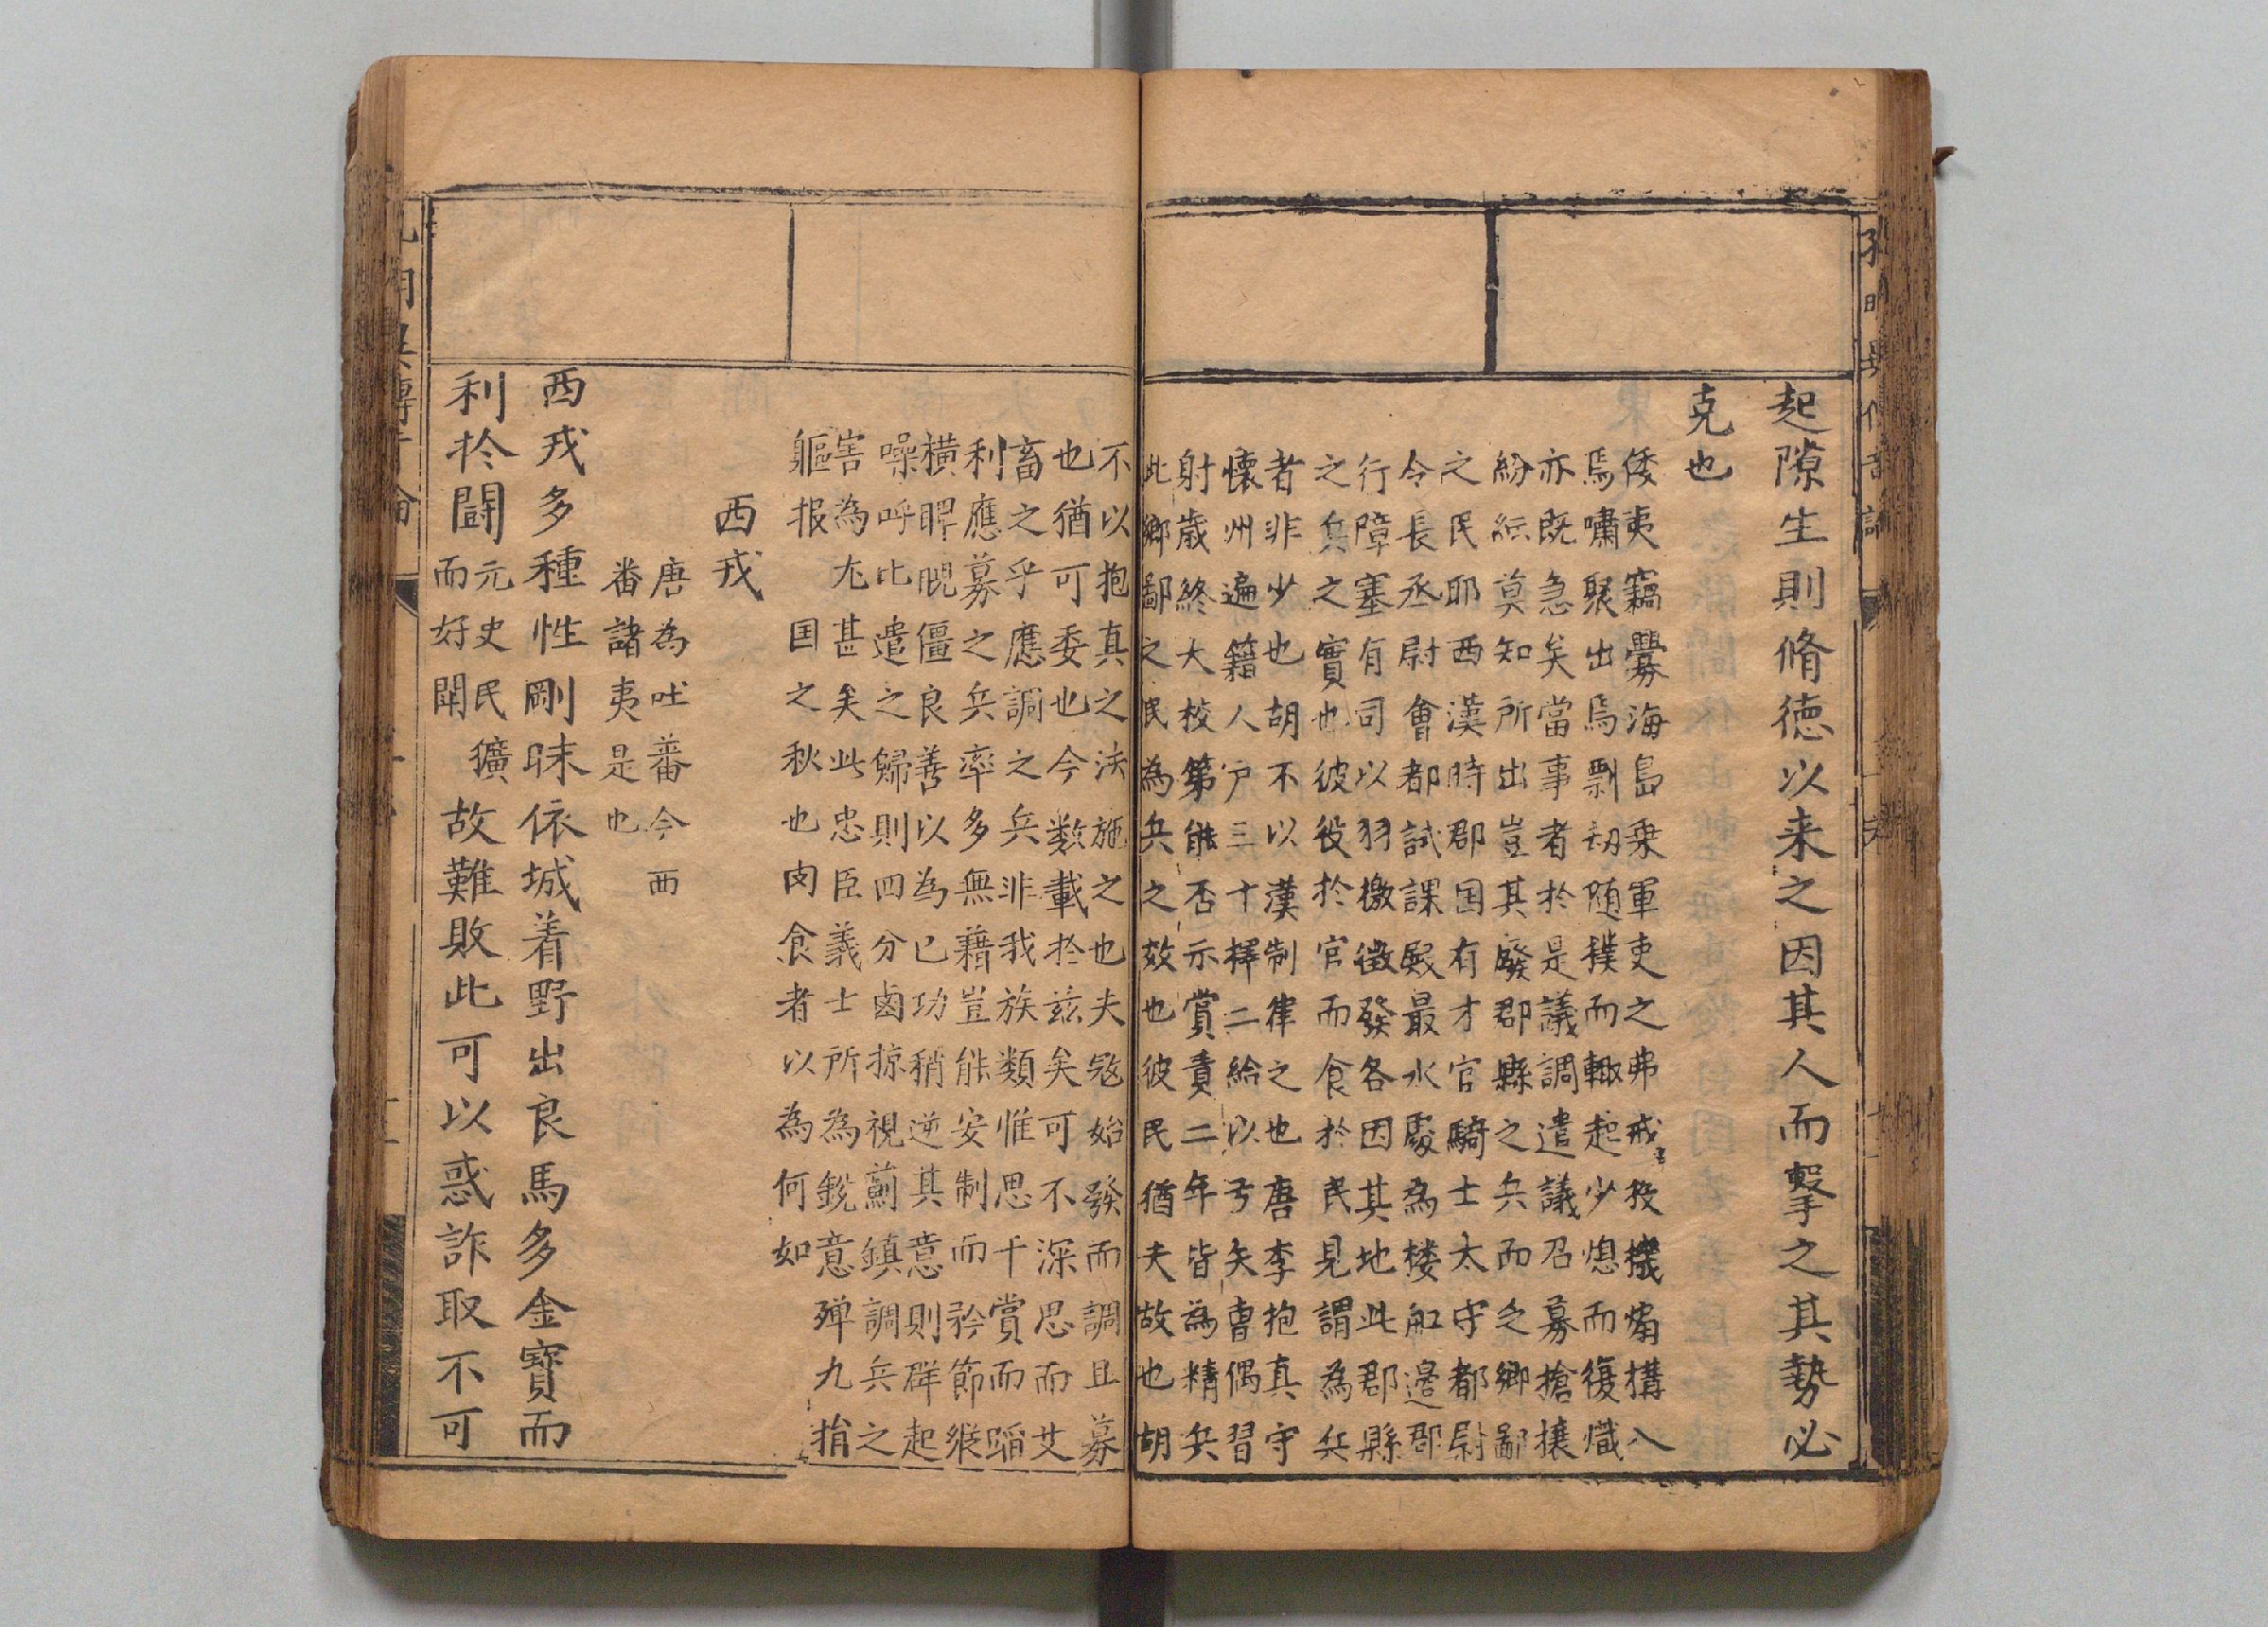 起隙生則脩徳以来之因其人而擊之其勢必
克也
倭夷竊釁海島乗軍吏之弗戒投機煽構入
焉嘯聚出焉剽刼随穫而輙起少熄而復熾
亦既急矣當事者於是議調遣議召募搶攘
紛紜莫知所出豈其廢郡縣之兵而之鄉鄙
之民耶西漢時郡国有才官騎士太守都尉
令長丞尉會都試課殿最水處為楼舡邉郡
行障塞有司以羽檄徵發各因其地此郡縣
之兵之實也彼役於官而食於民見謂為兵
者非少也胡不以漢制律之也唐李抱真守
懐州遍籍人户三十擇二給以弓矢曹偶習
射歳終大校第能否示賞責二年皆為精兵
此鄉鄙之民為兵之效也彼民猶夫故也胡
不以抱真之法施之也夫冦始發而調且募
也猶可委也今数載扵兹矣可不深思而艾
畜之乎應調之兵非我族類惟思干賞而蹈
利應募之兵率多無藉豈能安制而矜節縱
横睥睨僵良善以為已功稍逆其意則群起
噪呼比遣之歸則四分鹵掠視薊鎮調兵之
害為尢甚矣此忠臣義士所為銳意殫九捐
軀报国之秋也肉食者以為何如
西戎
唐為吐蕃今西
番諸夷是也
西戎多種性剛昧依城着野出良馬多金寳而
利扵鬪元史民獷而好閗故難敗此可以惑詐取不可